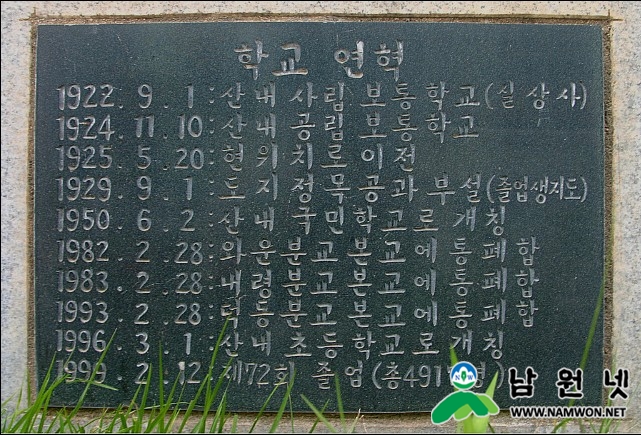 학교 연혁
1922. 9. 1:산내사립보통학교(실상사)
1924. 11. 10:산내공립보통학교
1925. 5. 20:현위치로이전
1929. 9. 1:토지정목공과부설(졸업생지도)
1950. 6. 2:산내국민학교로개칭
1982. 2. 28:와운분교본교에통폐합
1983. 2. 28:내령분교본교에통폐합
1993. 2. 28:덕동분교본교에통폐합
1996. 3. 1:산내초등학교로개칭
1999. 2. 12:제72회 졸업(총491
남원넷
WWW.NAMWON.NET